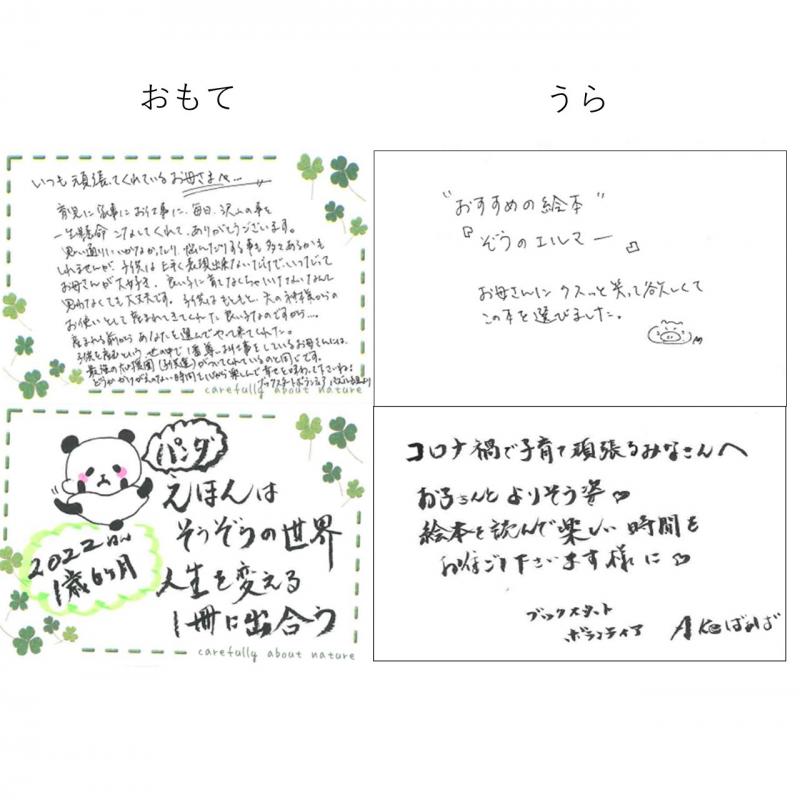 おもて
うら
いつも頑張ってくれているお母さまへ…
育児に家事にお仕事に、毎日、沢山の事を
一生懸命こなしてくれて、ありがとうございます。
思い通りにいかなかったり、悩んだりする事も多々あるかも
しれませんが、子供は上手く表現出来ないだけで、いつだって
お母さんが大好き。良い子に育てなくちゃいけないなんて
思わなくても大丈夫です。子供はもともと、天の神様からの
お使いとして産まれてきてくれた良い子なのですから…。
産まれる前からあなたを選んでやって来てくれた。
子供を産むという世の中で1番尊いお仕事をしているお母さんには、
最強の応援団(子供達)がついてくれているのと同じです。
どうかかけがえのない時間を心から楽しんで幸せを味わって下さいね!
ブックスタートボランティア
carefully about nature
"おすすめの絵本"
『ぞうのエルマー』
お母さんにクスッと笑って欲しくて
この本を選びました。
パンダ
えほんは
そうぞうの世界
人生を変える
1冊に出合う
2022
1歳6ヶ月
carefully about nature
コロナ禍で子育て頑張るみなさんへ
お子さんとよりそう姿♡
絵本を読んで楽しい時間を
お過ごし下さいます様に♡
ブックスタート
ボランティア
AKeばぁば